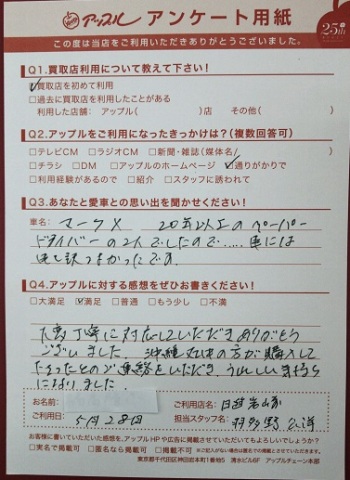 アップル アンケート用紙
25th
この度は当店をご利用いただきありがとうございました。
Q1.買取店利用について教えて下さい！
☑買取店を初めて利用
□過去に買取店を利用したことがある
利用した店舗： アップル（　　　　）店　その他（　　　　）
Q2.アップルをご利用になったきっかけは？（複数回答可）
□テレビCM □ラジオCM □新聞・雑誌（媒体名／　　　　）
□チラシ □DM □アップルのホームページ ☑通りがかりで
□利用経験があるので □紹介 □スタッフに誘われて
Q3.あなたと愛車との思い出を聞かせください！
車名： マークX 20年以上のペーパー
ドライバーの2人でしたので.....車には
申し訳なかったです。
Q4.アップルに対する感想をぜひお書きください！
□大満足 ☑満足 □普通 □もう少し □不満
大変丁寧に対応していただきありがとう
ございました。沖縄の方が購入して
下さったとのご連絡をいただき、うれしい気持ち
になりました。
お名前：
ご利用日： 5月28日
ご利用店名：
担当スタッフ名： 羽多野
お客様に書いていただいた感想を、アップルHPや広告に掲載させていただいてもよろしいでしょうか？
□実名で掲載可 □匿名なら掲載可 □掲載不可
東京都千代田区神田岩本町1番地5 清水ビル6F アップルチェーン本部